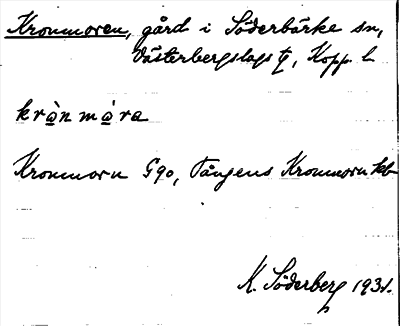 Kronmoren, gård i Söderbärke sn,
Västerbergslags tg, Kopp. l.
krò̱n mò̱ra
Kronmorn G90, Tångens Kronmorn kb
K. Söderberg 1931.